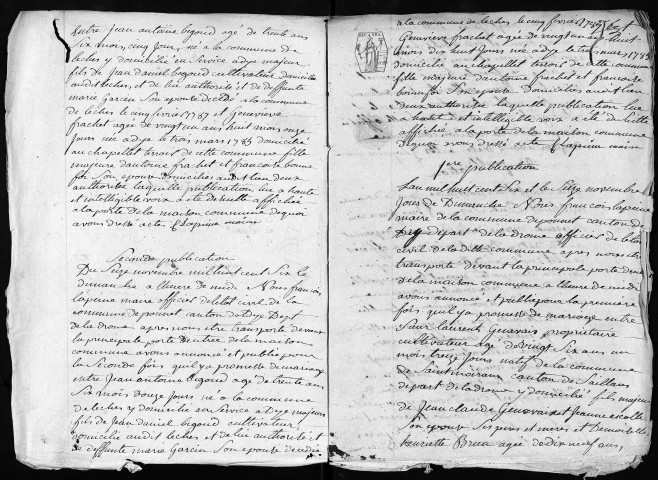 entre Jean antoine bigoud agé de trente ans
Six mois, cinq Jour, né a la commune de
leches y domicilié en Service a dye majeur
fils de Jean daniel bigoud cultivateur domicilié
audit leches, et de lui authorisé et de deffunte
marie Garcin Son epouse decédé a la commune
de leches le cinq fevrier 1787 et Genevieve
frachet agée de vingt un ans huit mois onze
Jours née a dye le trois mars 1785 domicilié
au chapellet terroir de cette commune fille
majeure d'antoine frachet et francoise bonne
foi Son epoux domiciliés audit lieu deux
authorisé laquelle publication lue a haute
et intelligible voix a eté de suitte affichée
a la porte de la maison commune de quoi
avons dressé acte Elapeine maire
Seconde publication
Du Seize novembre mil huit cent Six le
dimanche a lheure de midi Nous francois
lapeine maire officier de letat civil de la
commune de ponnet canton de Dye Dept
de la drome apres nous etre transporté devant
la principale porte dentrée de la maison
commune avons annoncé et publié pour
la Seconde fois quil y a promesse de mariage
entre Jean antoine bigoud agé de trente ans
Six mois douze Jours né a la commune
de leches y domicilié en Service a Dye majeur
fils de Jean daniel bigoud cultivateur
domicilié audit leches et de lui authorisé et
de deffunte marie Garcin Son epouse decedée
a la commune de leches, le cinq fevrier 1787 et
Genevieve frachet agée de vingt un ans huit
mois dix huit Jours née a dye le trois mars 1785
domicilié au chapellet terroir de cette commune
fille majeure d'antoine frachet et francoise
bonnefoi Son epouse Domiciliés audit lieu
deux authorisé laquelle publication lue
a haute et intelligible voix a eté de suitte
affichée a la porte de la maison commune
de quoi avons dressé acte Elapeine maire
1ere publication
Lan mil huit cent Six et le Seize novembre
Jour de Dimanche Nous francois lapeine
maire de la commune de ponnet canton de
Dye depart de la drome officier de letat
civil de la ditte commune apres nous etre
transporté devant la principale porte dentrée
de la maison commune a lheure de midi
avons annoncé et publié pour la premiere
fois quil y a promesse de mariage entre
Sieur laurent Genovais proprietaire
cultivateur agé de vingt Six ans un
mois treize Jours natif de la commune
de Saint moirans canton de Saillans
depart de la drome y domicilié fils majeur
de Jean claude Genovais et Jeanne
Son epouse Ses pere et mere et Demoiselle
henriette Brun agée de dix neuf ans,